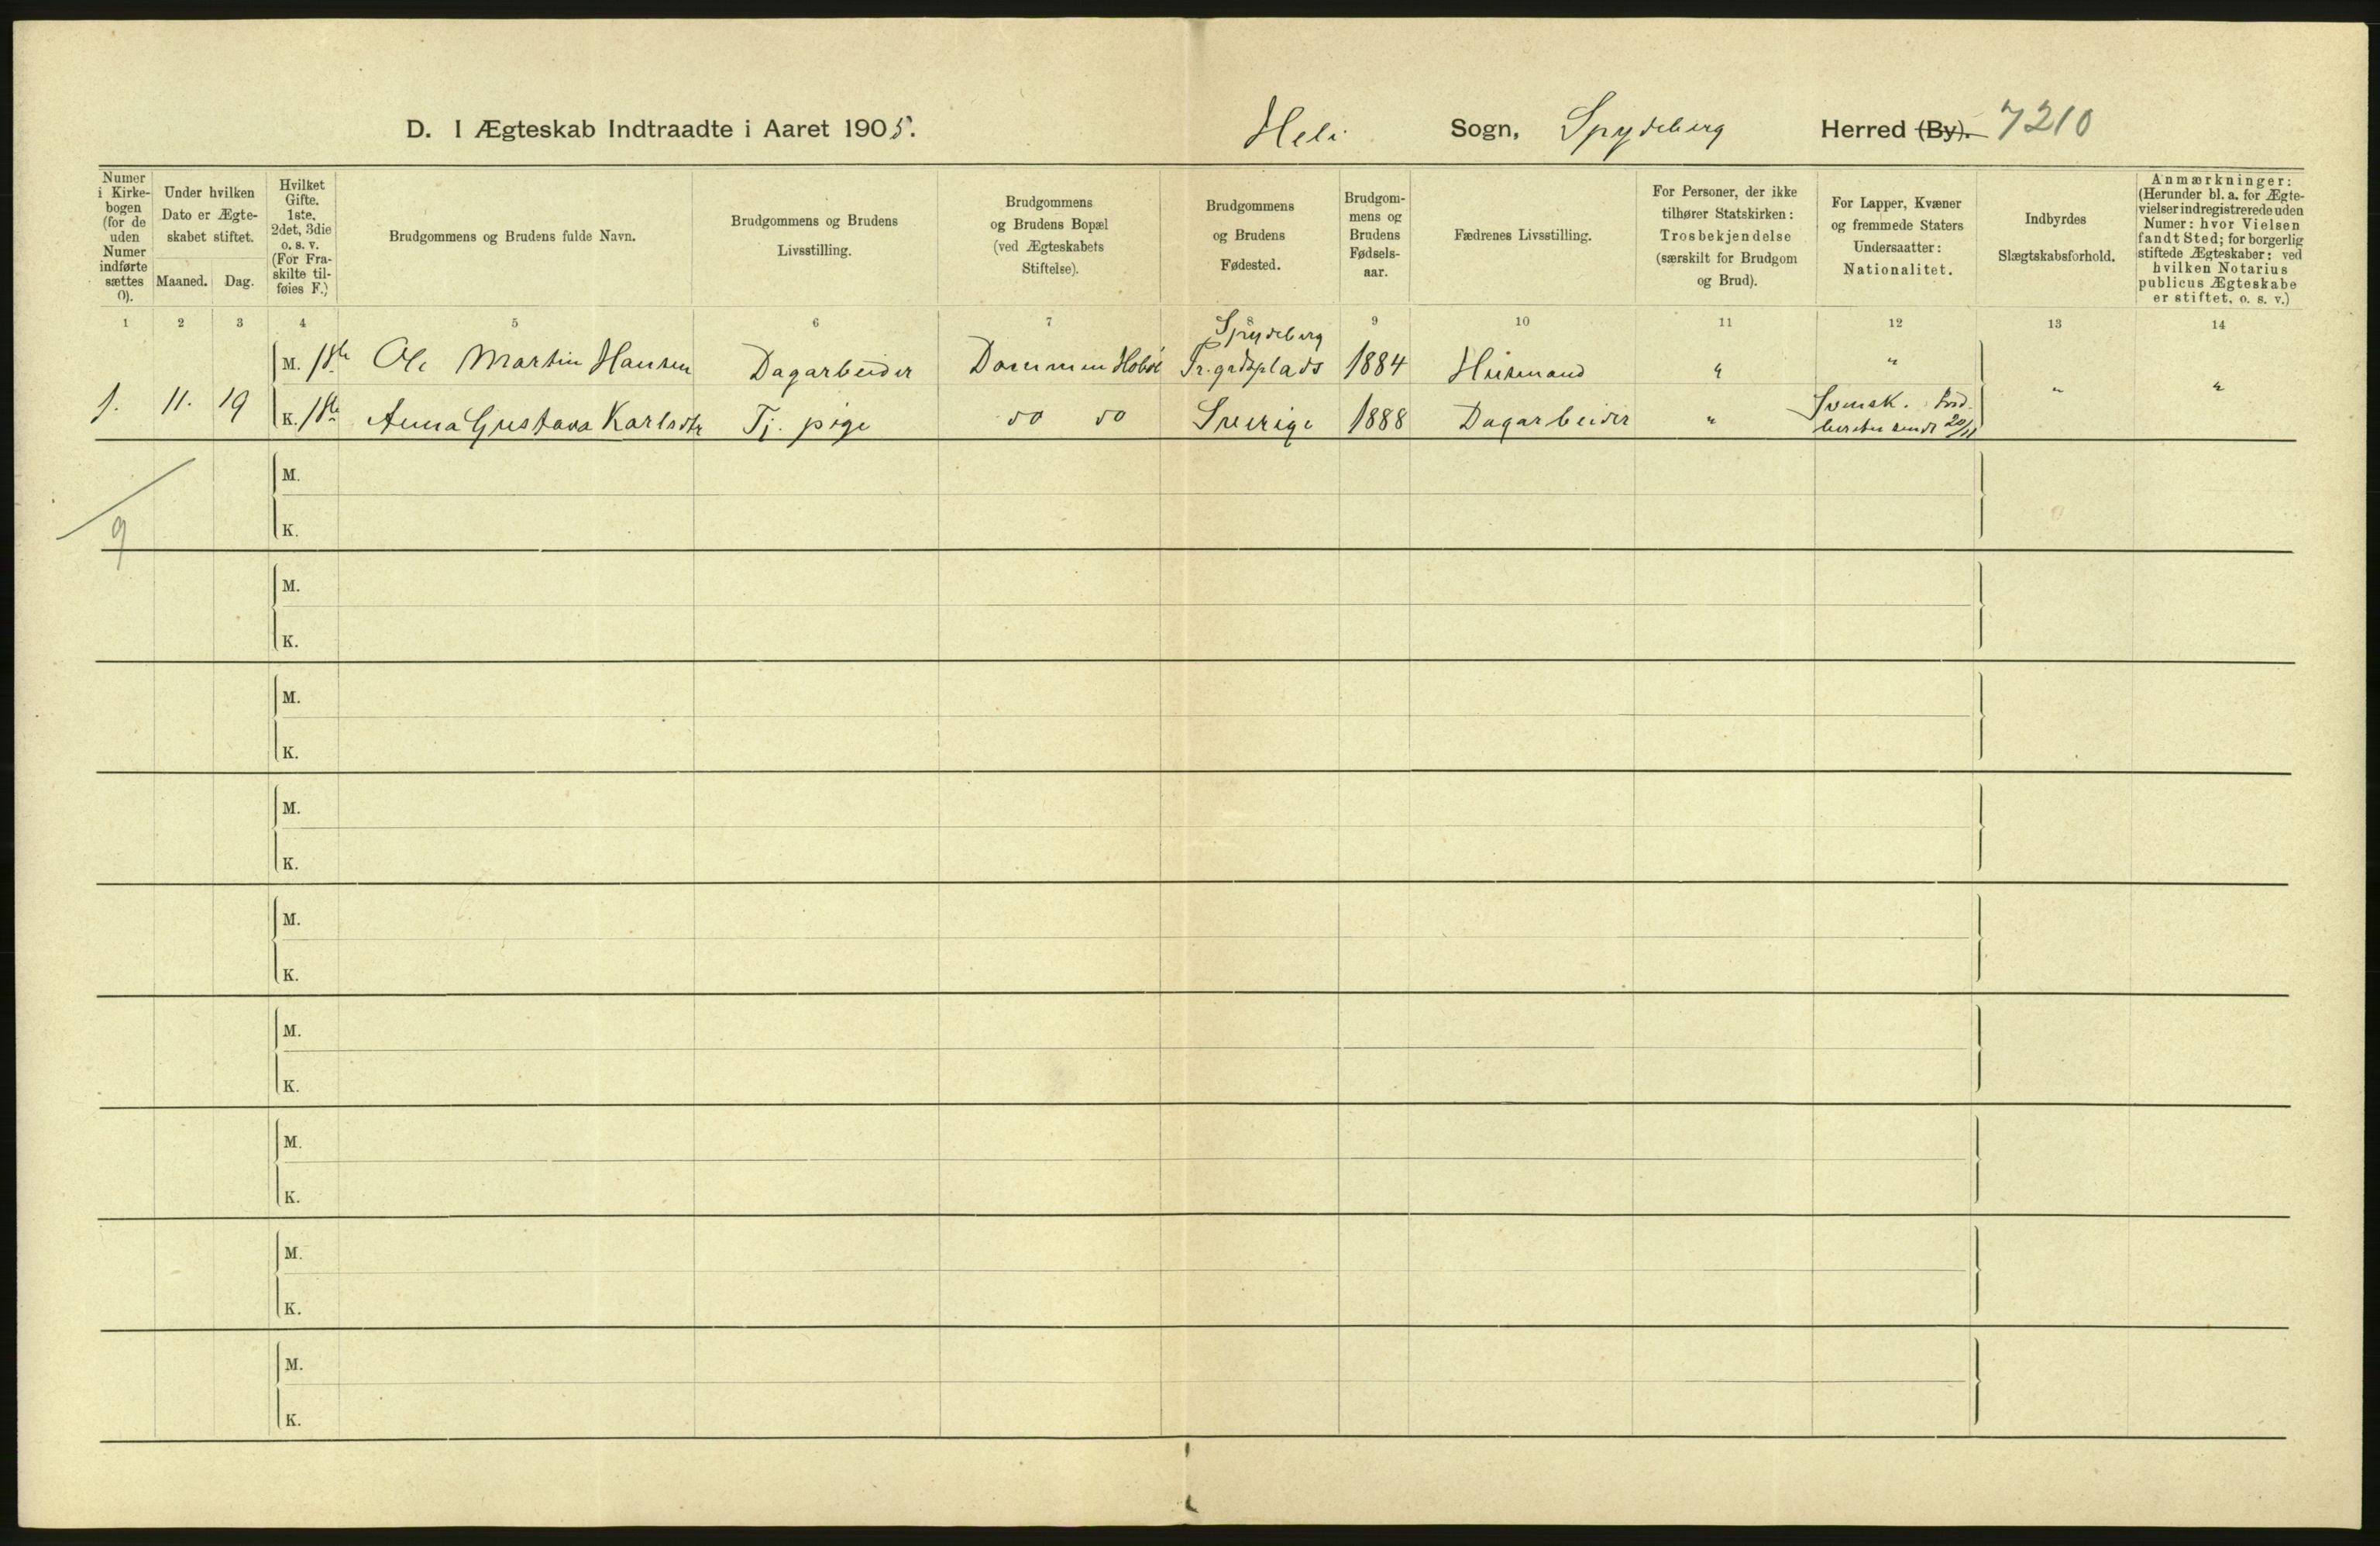 D. I Ægteskab Indtraadte i Aaret 1905. Heli Sogn, Spydeberg Herred (By). 7210
Numer i Kirkebogen (for de uden Numer indførte sættes 0).
Under hvilken Dato er Ægteskabet stiftet.
Maaned. Dag.
Hvilket Gifte. 1ste, 2det, 3die o. s. v. (For Fraskilte tilføies F.)
Brudgommens og Brudens fulde Navn.
Brudgommens og Brudens Livsstilling.
Brudgommens og Brudens Bopæl (ved Ægteskabets Stiftelse).
Brudgommens og Brudens Fødested.
Brudgommens og Brudens Fødselsaar.
Fædrenes Livsstilling.
For Personer, der ikke tilhører Statskirken: Trosbekjendelse (særskilt for Brudgom og Brud).
For Lapper, Kvæner og fremmede Staters Undersaatter: Nationalitet.
Indbyrdes Slægtskabsforhold.
Anmærkninger: (Herunder bl. a. for Ægtevielser indregistrerede uden Numer: hvor Vielsen fandt Sted; for borgerlig stiftede Ægteskaber: ved hvilken Notarius publicus Ægteskabe er stiftet, o. s. v.)
1 2 3 4 5 6 7 8 9 10 11 12 13 14
Spydeberg
M. 1ste Ole Martin Hansen Dagarbeider Dammen Hobøl Pr.grdsplads 1884 Husmand " "
1. 11. 19 " "
K. 1ste Anna Gustava Karlsdtr Tj. pige do do Sverige 1888 Dagarbeider " Svensk.
sendt 20/11
M.
9
K.
M.
K.
M.
K.
M.
K.
M.
K.
M.
K.
M.
K.
M.
K.
M.
K.